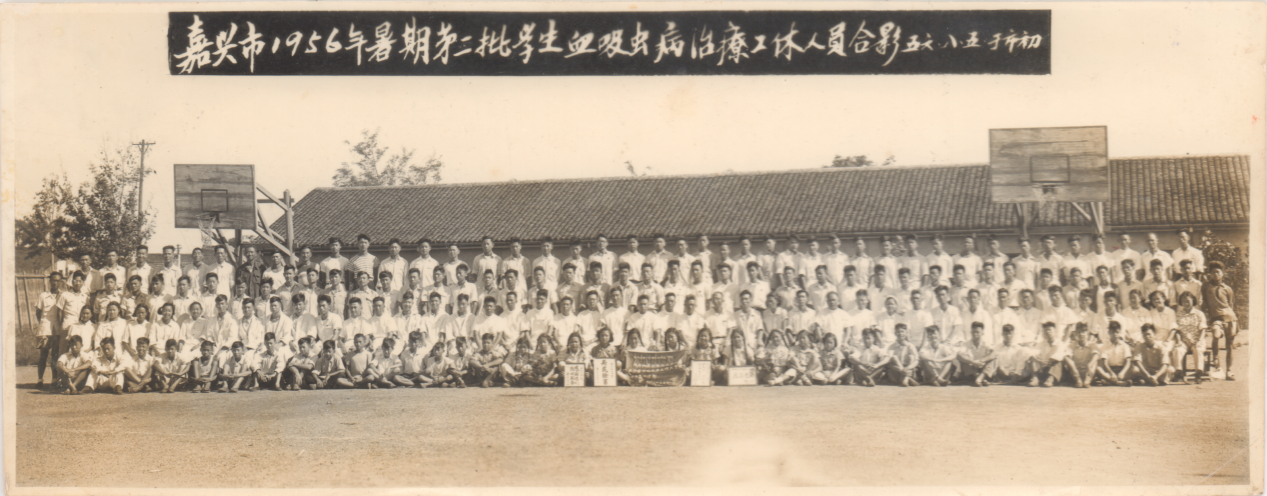 嘉兴市1956年暑期第二批学生血吸虫病治療工休人員合影 五六.八.五于市初